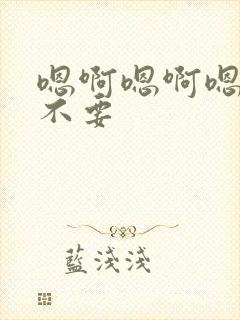 嗯啊嗯啊嗯
不要
藍淺淺